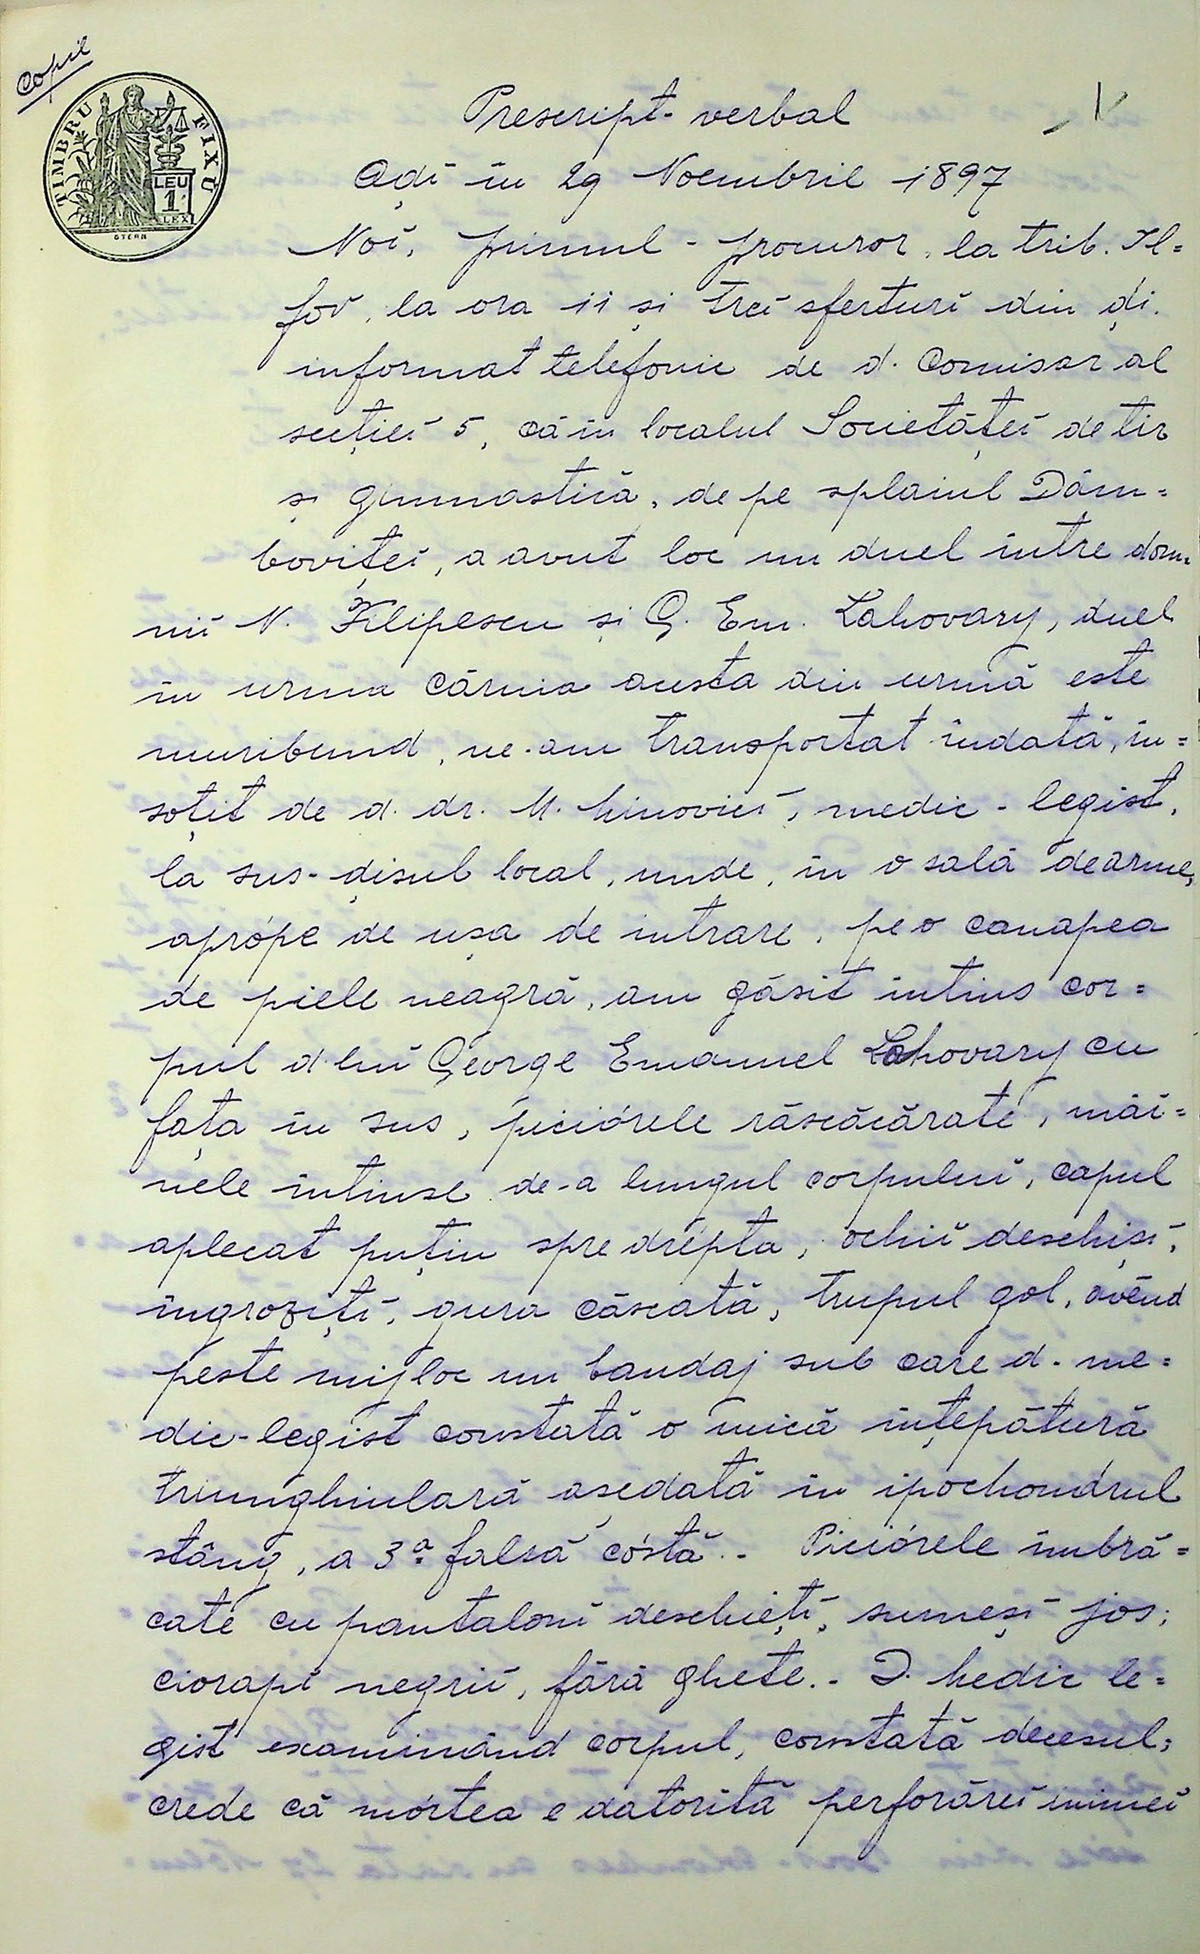 Copie
TIMBRU FIXU
LEU
1
LEX
STERN
Prescript-verbal
Adĭ în 29 Noembrie 1897
Noĭ, primul-procuror, la trib. Il=
fov, la ora 11 și treĭ sferturĭ din ḑi.
informat telefonic de d. comisar al
secțieĭ 5, că în localul Societățeĭ de tir
și gimnastică, de pe splaiul Dâm=
bovițeĭ, a avut loc un duel între dom-
niĭ N. Filipescu și G. Em. Lahovary, duel
în urma căruia acesta din urmă este
muribund, ne-am transportat îndată, în=
soțit de d. dr. M. Minovicĭ, medic-legist,
la sus-ḑisul local, unde, în o sală de arme,
aprópe de ușa de intrare, pe o canapea
de piele neagră, am găsit întins cor=
pul d-luĭ George Emanuel Lahovary cu
fața în sus, piciórele răscăcărate, mâi=
nele întinse de-a lungul corpuluĭ, capul
aplecat puțin spre drépta, ochiĭ deschișĭ,
îngrozițĭ, gura căscată, trupul gol, avênd
peste mijloc un bandaj sub care d. me=
dic-legist constată o mică înțepătură
triunghiulară așeḑată în ipochondrul
stâng, a 3ª falsă cóstă.- Piciórele îmbră=
cate cu pantalonĭ deschiețĭ, sumeșĭ jos;
ciorapĭ negriĭ, fără ghete.- D. Medic le=
gist examinând corpul, constată decesul;
crede că mórtea e datorită perforăreĭ inimeĭ